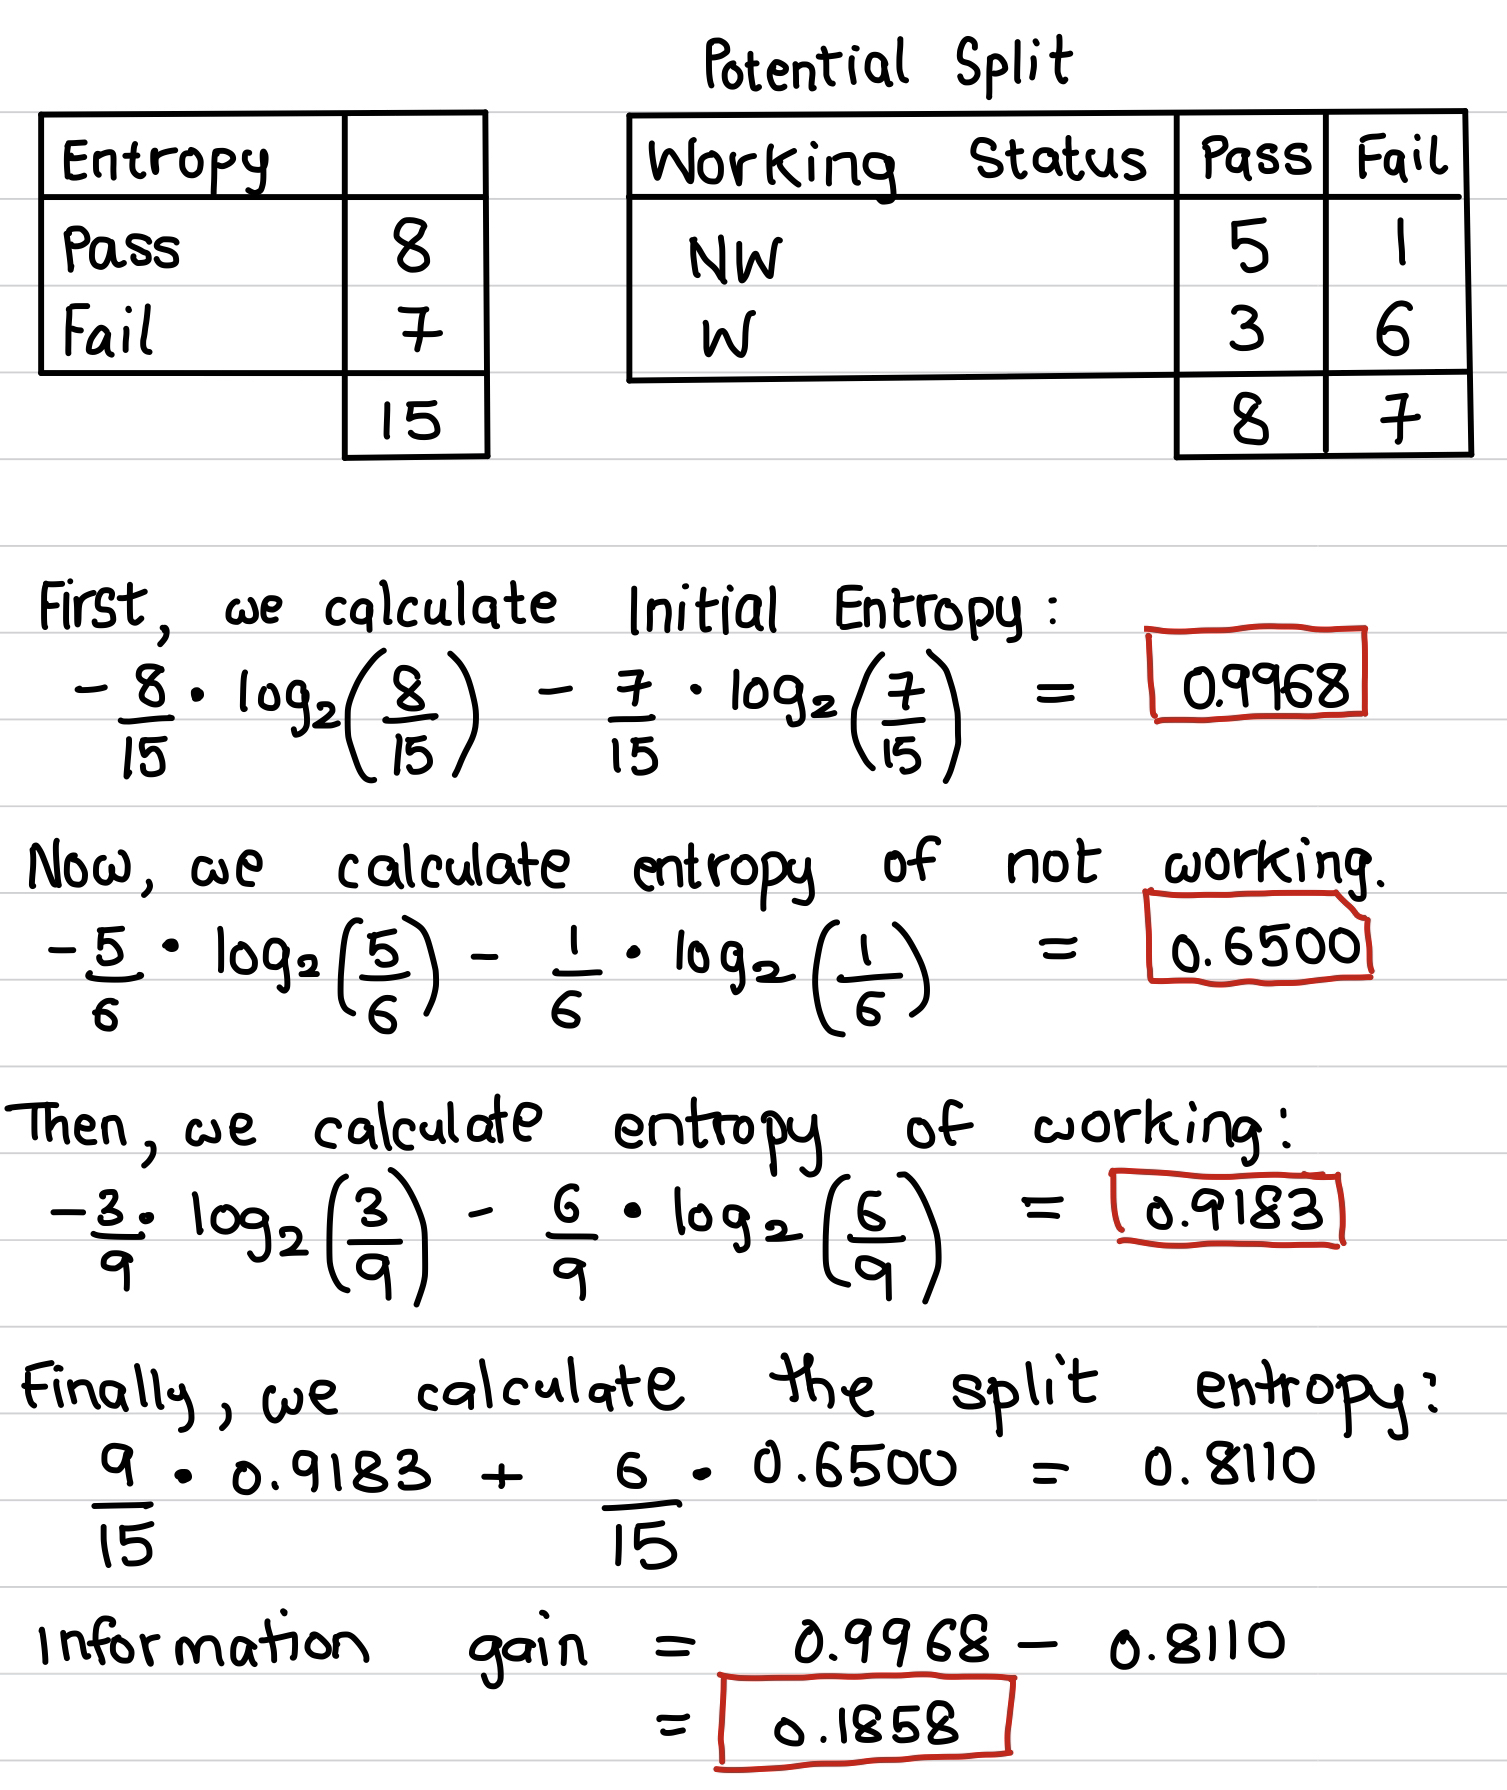 Potential Split
Entropy
Pass 8
Fail 7
15
Working Status Pass Fail
NW 5 1
W 3 6
8 7
First, we calculate Initial Entropy:
- 8/15 · log₂(8/15) - 7/15 · log₂(7/15) = 0.9968
Now, we calculate entropy of not working.
- 5/6 · log₂(5/6) - 1/6 · log₂(1/6) = 0.6500
Then, we calculate entropy of working:
- 3/9 · log₂(3/9) - 6/9 · log₂(6/9) = 0.9183
Finally, we calculate the split entropy:
9/15 · 0.9183 + 6/15 · 0.6500 = 0.8110
Information gain = 0.9968 - 0.8110
= 0.1858